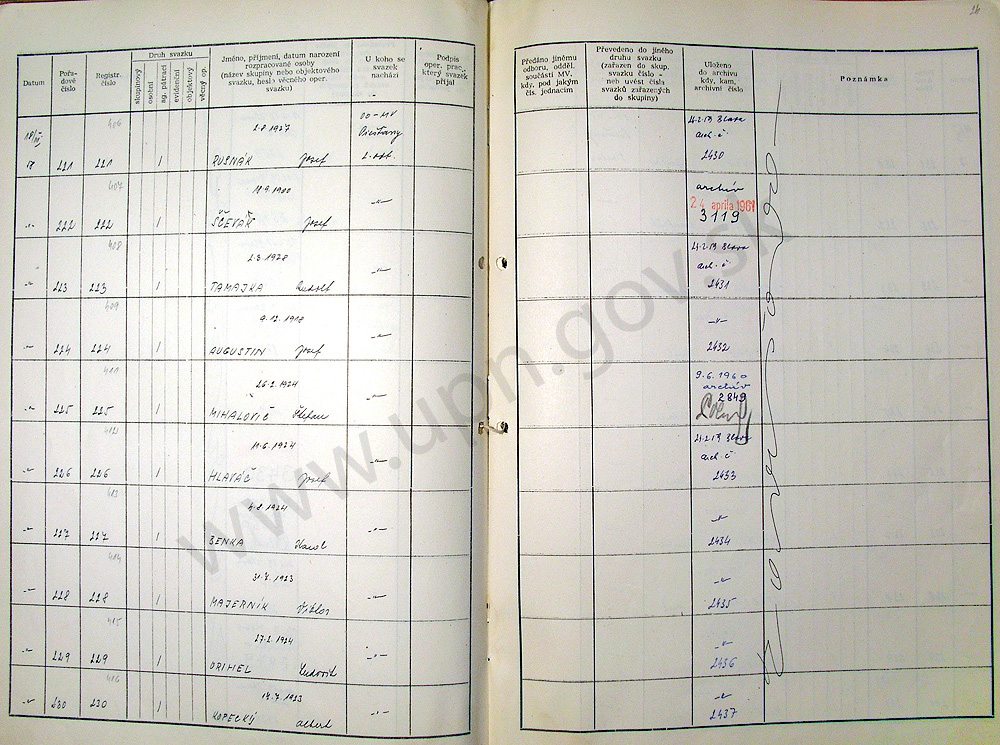 26
Datum
Pořadové číslo
Registr. číslo
Druh svazku
skupinový
osobní
ag. pátrací
evidenční
objektový
věcný op.
Jméno, příjmení, datum narození
rozpracované osoby
(název skupiny nebo objektového
svazku, heslo věcného oper.
svazku)
U koho se
svazek
nachází
Podpis
oper. prac.
který svazek
přijal
Předáno jinému
odboru, odděl.
součásti MV.
kdy, pod jakým
čís. jednacím
Převedeno do jiného
druhu svazku
(zařazen do skup.
svazku číslo -
neb uvést čísla
svazků zařazených
do skupiny)
Uloženo
do archivu
kdy, kam,
archivní číslo
Poznámka
406
2.8.1927
OO-MV
Piešťany
221 221 1 RUSNÁK Jozef 2. odd.
Arch. č.
2430
407
18.9.1900
222 222 1 ŠČEVÁK Jozef -"-
archív
24. apríla 1961
3119
408
2.3.1928
223 223 1 TAMAJKA Rudolf -"-
Arch. č.
2431
409
9.12.1918
224 224 1 AUGUSTIN Jozef -"-
-"-
2432
411
26.2.1924
225 225 1 MIHALOVIČ Štefan -"-
9.6.1960
archív
2849
412
11.6.1924
226 226 1 HLAVÁČ Jozef -"-
Arch. č.
2433
413
4.8.1924
227 227 1 BENKA Karol -"-
-"-
2434
414
31.7.1923
228 228 1 MAJERNÍK Viktor -"-
-"-
2435
415
27.2.1924
229 229 1 DRIHEL Ľudovít -"-
-"-
2436
416
18.7.1923
230 230 1 KOPECKÝ Albert -"-
-"-
2437
www.upn.gov.sk